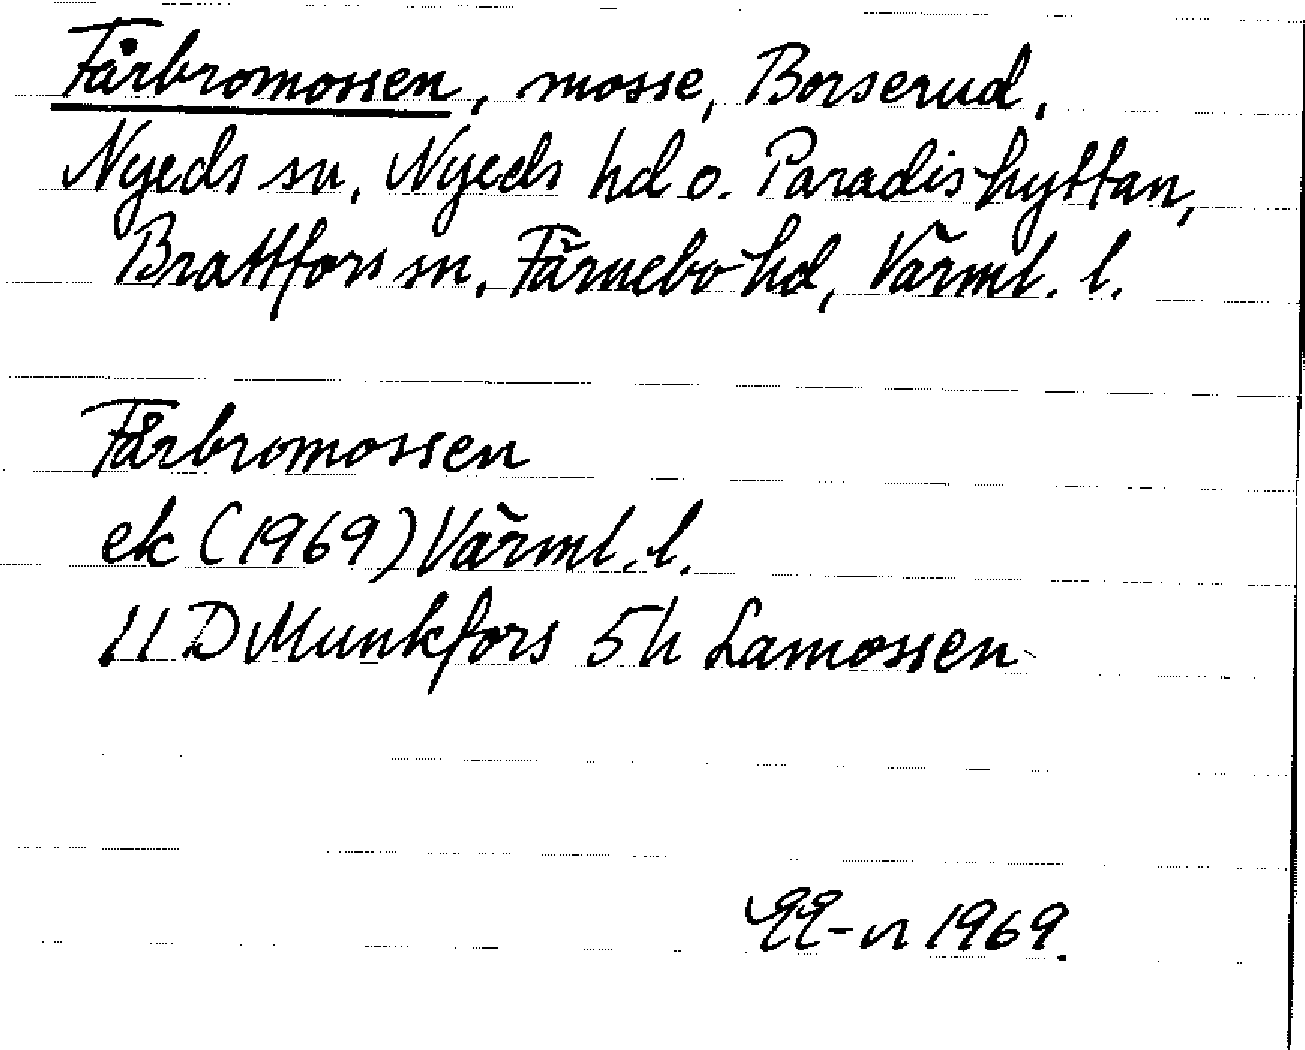 Fårbromossen, mosse, Borserud,
Nyeds sn, Nyeds hd o. Paradishyttan,
Brattfors sn, Färnebo hd, Värml. l.
Fårbromossen
ek (1969) Värml. l.
11 D Munkfors 5h Lamossen
1969.